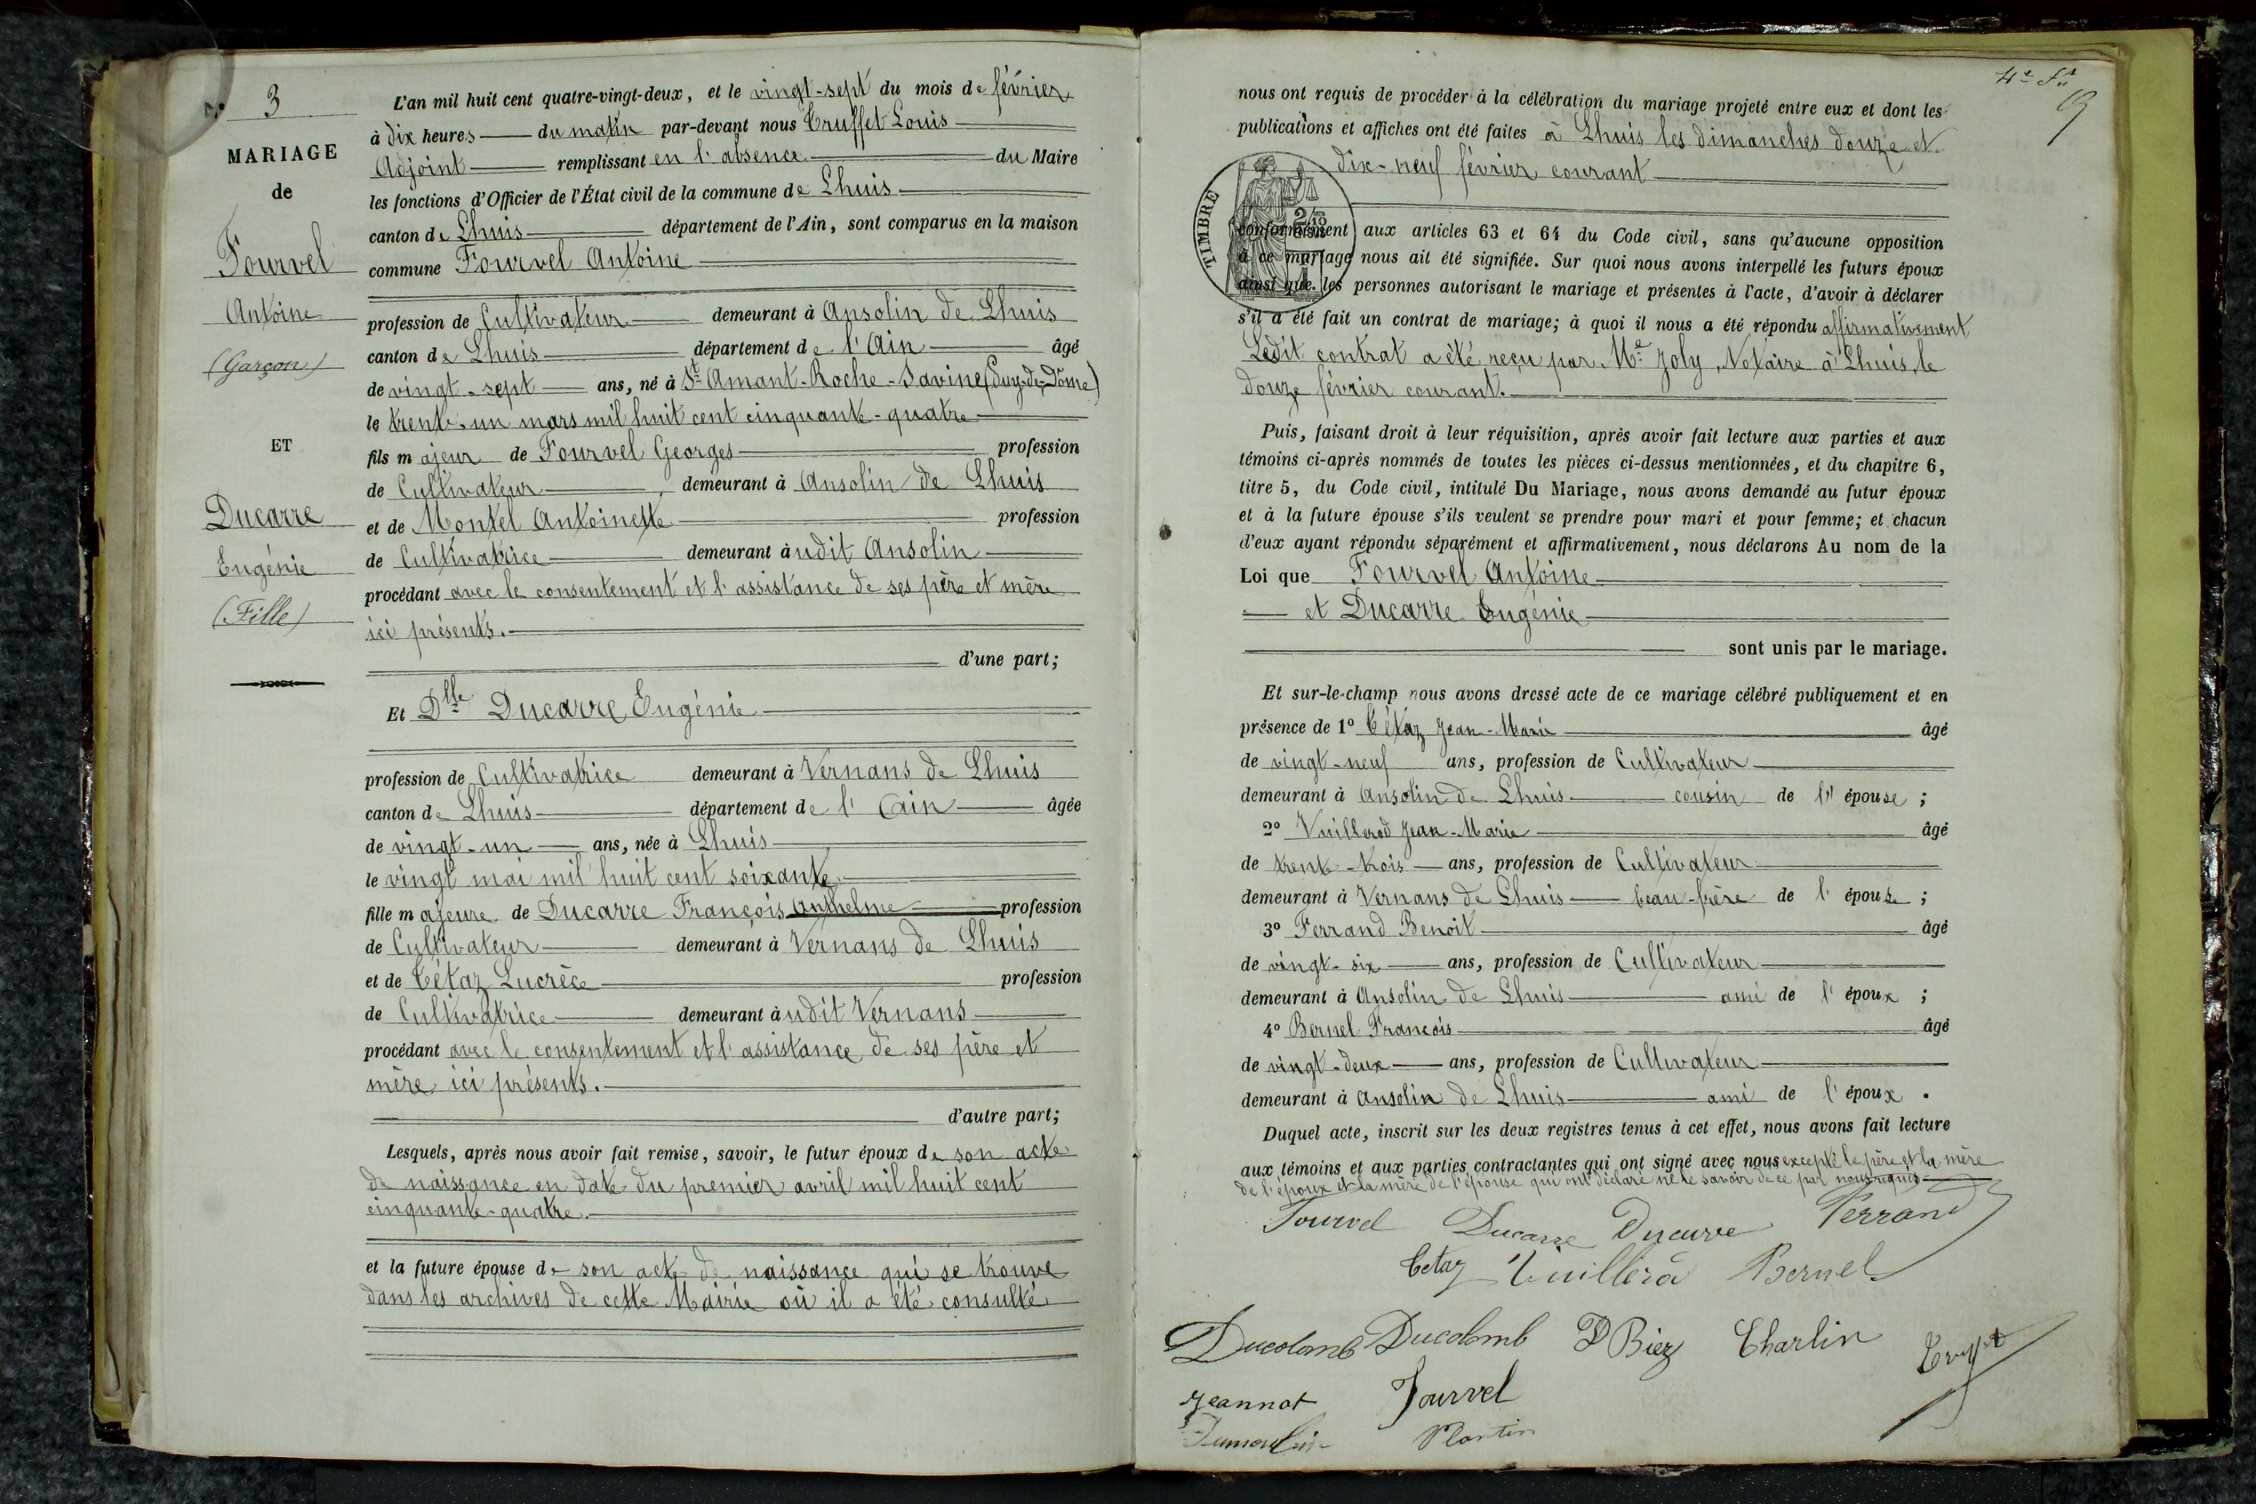 N° 3
MARIAGE
de
Fourvel
Antoine
(Garçon)
ET
Ducarre
Eugénie
(Fille)
L'an mil huit cent quatre-vingt-deux, et le vingt-sept du mois de février
à dix heures du matin par-devant nous Truffet Louis
Adjoint remplissant en l'absence du Maire
les fonctions d'Officier de l'État civil de la commune de Lhuis
canton de Lhuis département de l'Ain, sont comparus en la maison
commune Fourvel Antoine
profession de Cultivateur demeurant à Ansolin de Lhuis
canton de Lhuis département de l'Ain âgé
de vingt-sept ans, né à St Amant-Roche-Savine (Puy-de-Dôme)
le trente-un mars mil huit cent cinquante-quatre
fils majeur de Fourvel Georges profession
de Cultivateur demeurant à Ansolin de Lhuis
et de Montel Antoinette profession
de Cultivatrice demeurant àudit Ansolin
procédant avec le consentement et l'assistance de ses père et mère
ici présents.
d'une part;
Et Dlle Ducarre Eugénie
profession de Cultivatrice demeurant à Vernans de Lhuis
canton de Lhuis département de l'Ain âgée
de vingt-un ans, née à Lhuis
le vingt mai mil huit cent soixante
fille majeure de Ducarre François Anthelme profession
de Cultivateur demeurant à Vernans de Lhuis
et de Tétaz Lucrèce profession
de Cultivatrice demeurant àudit Vernans
procédant avec le consentement et l'assistance de ses père et
mère ici présents.
d'autre part;
Lesquels, après nous avoir fait remise, savoir, le futur époux de son acte
de naissance en date du premier avril mil huit cent
cinquante-quatre.
et la future épouse de son acte de naissance qui se trouve
dans les archives de cette Mairie où il a été consulté
19
nous ont requis de procéder à la célébration du mariage projeté entre eux et dont les
publications et affiches ont été faites à Lhuis les dimanches douze et
dix-neuf février courant
TIMBRE
conformément aux articles 63 et 64 du Code civil, sans qu'aucune opposition
à ce mariage nous ait été signifiée. Sur quoi nous avons interpellé les futurs époux
ainsi que les personnes autorisant le mariage et présentes à l'acte, d'avoir à déclarer
s'il a été fait un contrat de mariage; à quoi il nous a été répondu affirmativement
Ledit contrat a été reçu par Me Joly, Notaire à Lhuis, le
douze février courant.
Puis, faisant droit à leur réquisition, après avoir fait lecture aux parties et aux
témoins ci-après nommés de toutes les pièces ci-dessus mentionnées, et du chapitre 6,
titre 5, du Code civil, intitulé Du Mariage, nous avons demandé au futur époux
et à la future épouse s'ils veulent se prendre pour mari et pour femme; et chacun
d'eux ayant répondu séparément et affirmativement, nous déclarons Au nom de la
Loi que Fourvel Antoine
et Ducarre Eugénie
sont unis par le mariage.
Et sur-le-champ nous avons dressé acte de ce mariage célébré publiquement et en
présence de 1° Tétaz Jean-Marie âgé
de vingt-neuf ans, profession de Cultivateur
demeurant à Ansolin de Lhuis cousin de l'épouse;
2° Vuillerod Jean-Marie âgé
de trente-trois ans, profession de Cultivateur
demeurant à Vernans de Lhuis beau-frère de l'épouse;
3° Ferrand Benoit âgé
de vingt-six ans, profession de Cultivateur
demeurant à Ansolin de Lhuis ami de l'époux;
4° Bernel François âgé
de vingt-deux ans, profession de Cultivateur
demeurant à Ansolin de Lhuis ami de l'époux.
Duquel acte, inscrit sur les deux registres tenus à cet effet, nous avons fait lecture
aux témoins et aux parties contractantes qui ont signé avec nous excepté le père et la mère
de l'époux et la mère de l'épouse qui ont déclaré ne le savoir de ce par nous requis
Fourvel Ducarre Ducarre Ferrand
Tetaz Vuillerod Bernel
Ducolomb Ducolomb P Biez Charlin Truffet
Jeannot Fourvel
Dumoulin Plantin